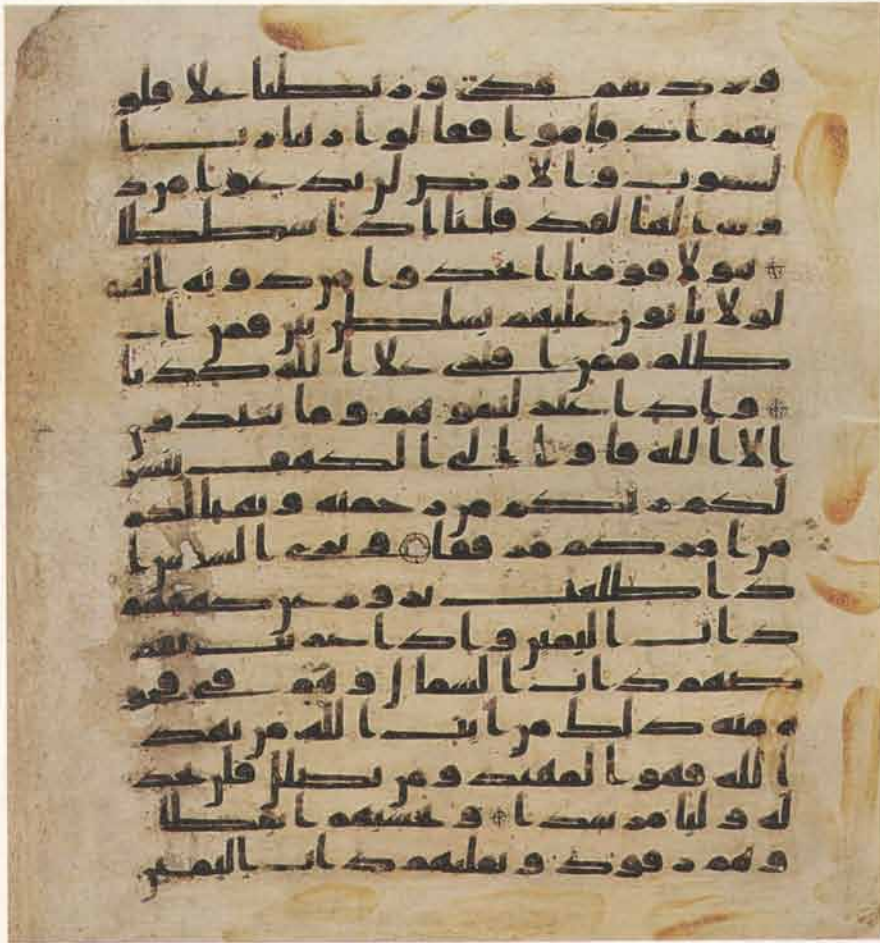 وزدنهم هدى وربطنا علا قلو
بهم اذ قاموا فقالوا ربنا رب ا
لسموت والارض لن ندعوا من د
ونه الها لقد قلنا اذا شططا
هولا قومنا اتخذوا من دونه الهه
لولا ياتون عليهم بسلطن بين فمن ا
ظلم ممن افترى علا الله كذبا
واذ اعتزلتموهم وما يعبدون
الا الله فاوا الى الكهف ينشر
لكم ربكم من رحمته ويهيا لكم
من امركم مرفقا وترى الشمس ا
ذا طلعت تزور عن كهفهم
ذات اليمين واذا غربت تقر
ضهم ذات الشمال وهم في فجو
ه منه ذلك من ايت الله من يهد
الله فهو المهتد ومن يضلل فلن تجد
له وليا مرشدا وتحسبهم ايقاظا
وهم رقود ونقلبهم ذات اليمين